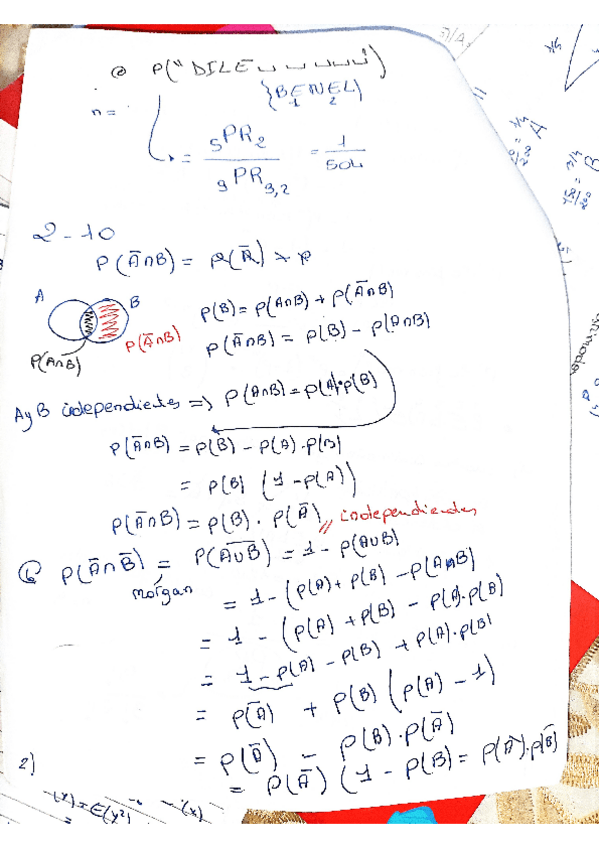 @ P("DILE␣ ␣ ␣ ␣ ␣")
{BENEL}
1 2
n =
= 5PR2 / 9PR3,2 = 1/504
2-10
P(Ā∩B) = P(Ā) * P
A B
P(A∩B) P(Ā∩B)
P(B) = P(A∩B) + P(Ā∩B)
P(Ā∩B) = P(B) - P(A∩B)
A y B independientes => P(A∩B) = P(A)•P(B)
P(Ā∩B) = P(B) - P(A).P(B)
= P(B) (1 - P(A))
P(Ā∩B) = P(B) . P(Ā) // independientes
P(Ā∩B̄) = P(A∪B)‾ = 1 - P(A∪B)
morgan
= 1 - (P(A) + P(B) - P(A∩B)
= 1 - (P(A) + P(B) - P(A).P(B)
= 1 - P(A) - P(B) + P(A).P(B)
= P(Ā) + P(B) (P(A) - 1)
= P(Ā) - P(B).P(Ā)
2) = P(Ā) (1 - P(B) = P(Ā).P(B̄)
-(x) = E(y²) - -(x)